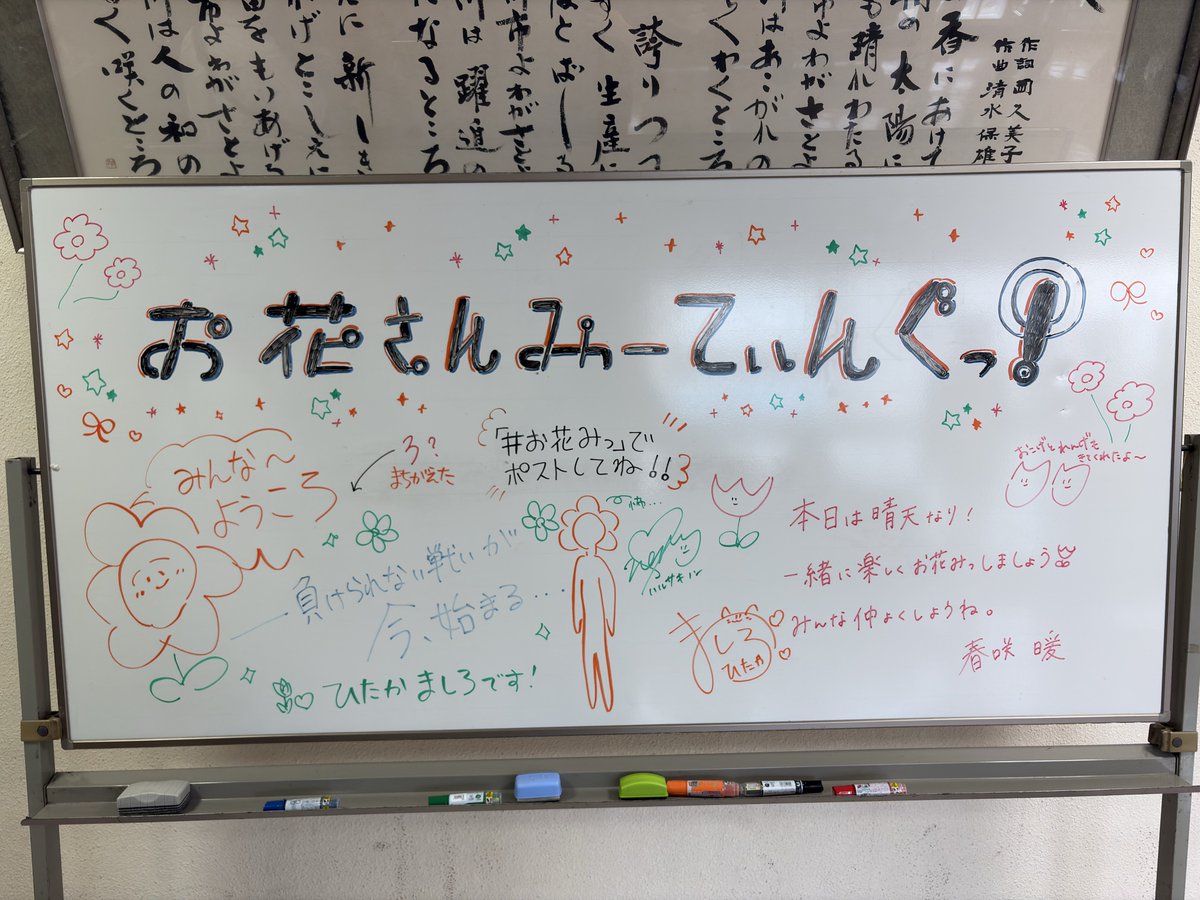 作詞 岡 久美子
作曲 清水保雄
香にあけて
太陽に
も晴れわたる
市よわがさとよ
はあこがれの
わくところ
誇りつつ
生産に
ほとばしる
市よわがさと
は躍進の
になるところ
に新しき
げとこしえに
市よわがさとよ
は人の和の
く咲くところ
お花さんみーてぃんぐっ!
みんな〜
ようころ
ろ?
まちがえた
「#お花みっ」で
ポストしてね!!
負けられない戦いが
今、始まる…
ひたかましろです!
怖…
ハルサキノン
ましろ
ひたか
おこげとれんげも
きてくれたよ〜
本日は晴天なり!
一緒に楽しくお花みっしましょう
みんな仲よくしようね。
春咲 暖